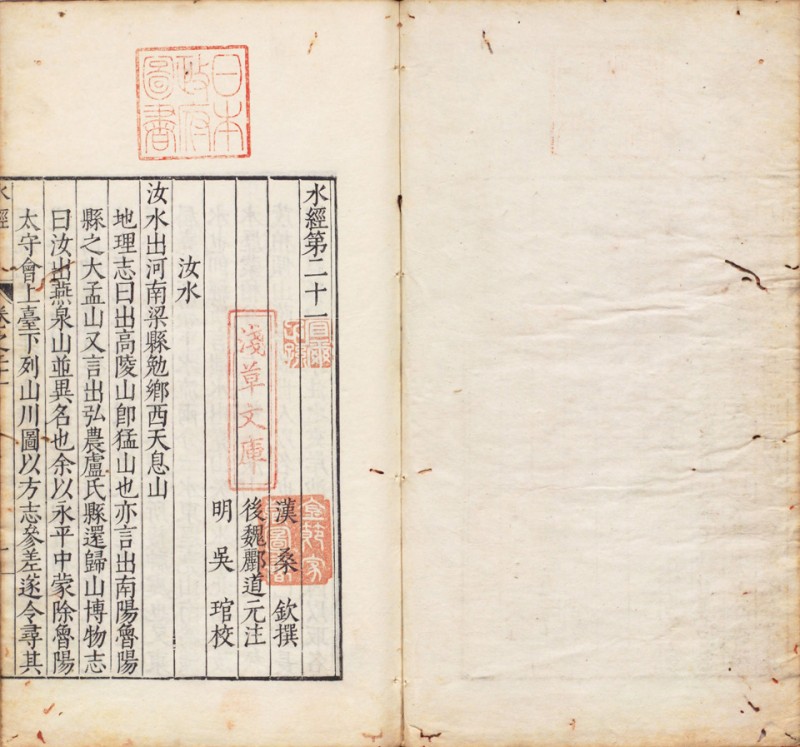 日本
政府
圖書
水經第二十一
漢 桑 欽撰
後魏酈道元注
明 吳 琯校
淺草文庫
汝水
汝水出河南梁縣勉鄉西天息山
地理志曰出高陵山卽猛山也亦言出南陽魯陽
縣之大盂山又言出弘農盧氏縣還歸山博物志
曰汝出燕泉山並異名也余以永平中蒙除魯陽
太守會上臺下列山川圖以方志參差遂令尋其
水經
卷之二十一